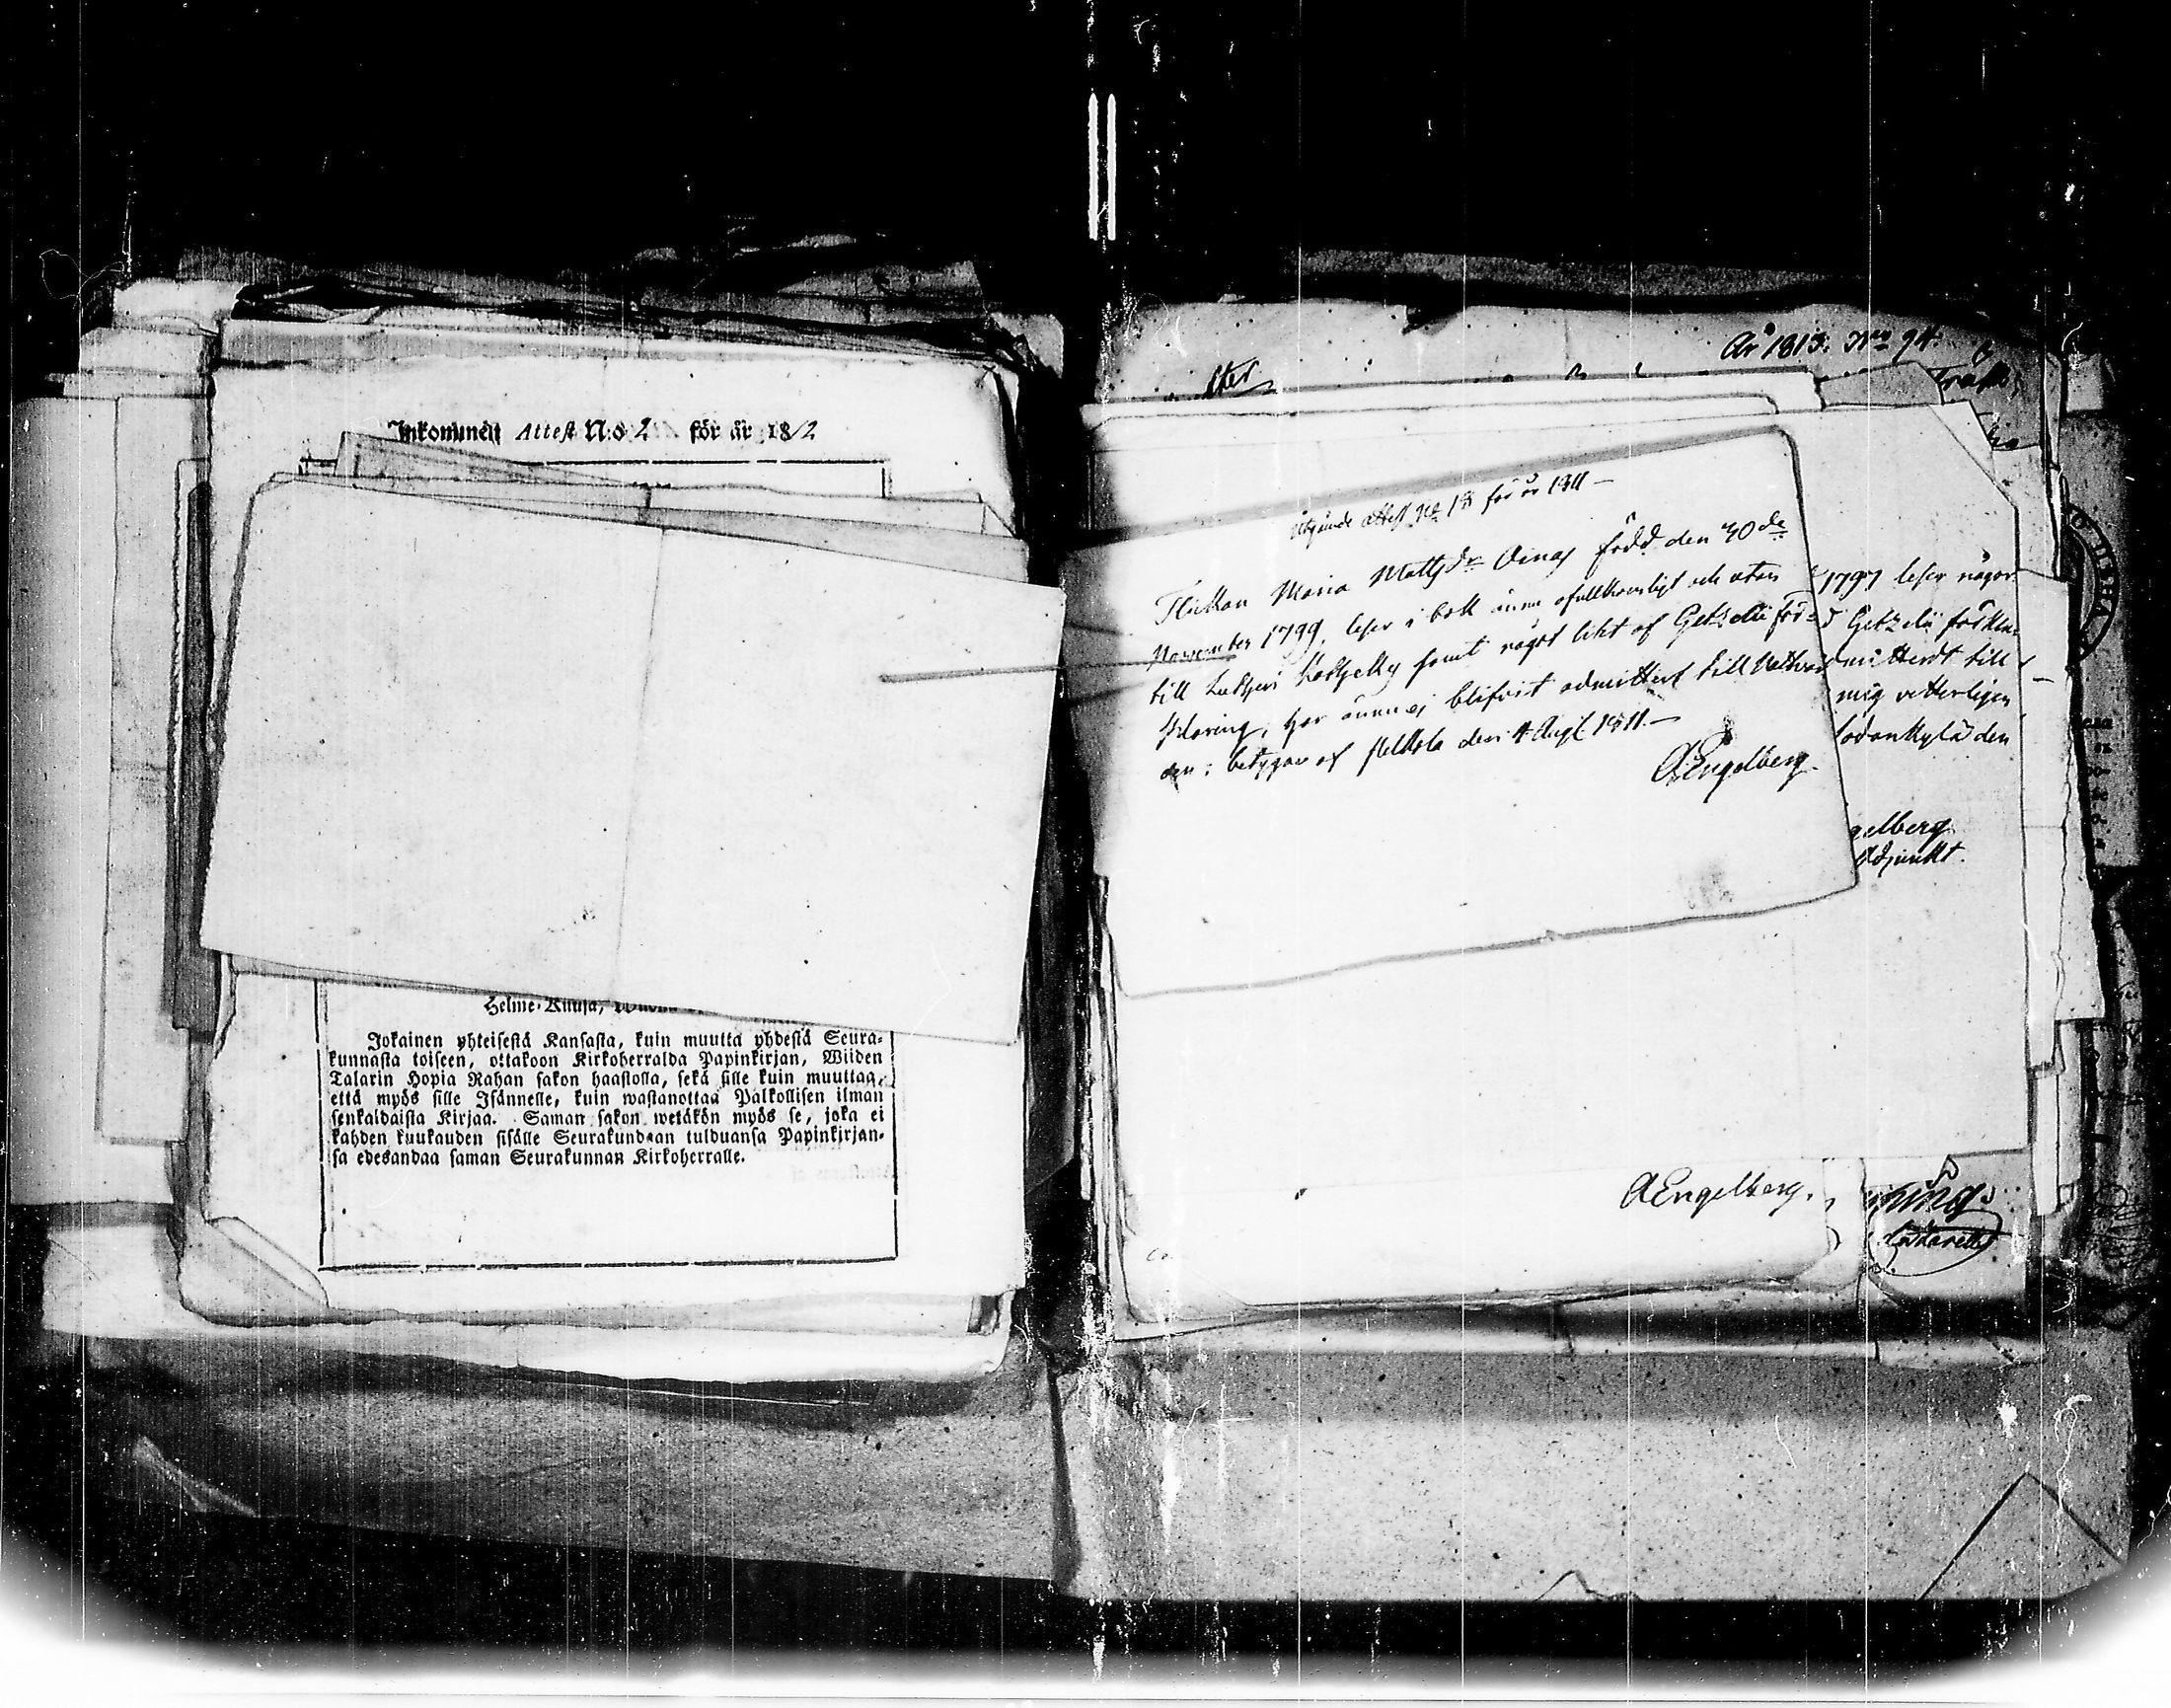 Inkommen Attest N:o 2 för år 1812
Helme-Knusa,
Jokainen yhteisestä Kansasta, kuin muutta yhdestä Seura-
kunnasta toiseen, ottakoon Kirkoherralda Papinkirjan, Wiiden
Talarin Hopia Rahan sakon haastolla, sekä sille kuin muuttaa,
että myös sille Isännelle, kuin wastanottaa Palkollisen ilman
senkaldaista Kirjaa. Saman sakon wetäkön myös se, joka ei
kahden kuukauden sisälle Seurakundaan tulduansa Papinkirjan-
sa edesandaa saman Seurakunnan Kirkoherralle.
År 1813. Nro 94.
Utgående attest No 18 för år 1811 —
Flickan Maria Mattsdr Ainas född den 30de
November 1799, läser i bok ännu ofullkomligt och utan
till Lutheri samt något litet af Getzelii för=
klaring, har ännu ej blifvit admitterad till Nattvar
den; betygar af Pelkola den 4 Aug. 1811. —
AEngelberg.
1797 läser någor
Getzelii förkla
mitterdt till
mig vetterligen
Sodankylä den
gelberg
Adjunkt.
AEngelberg.